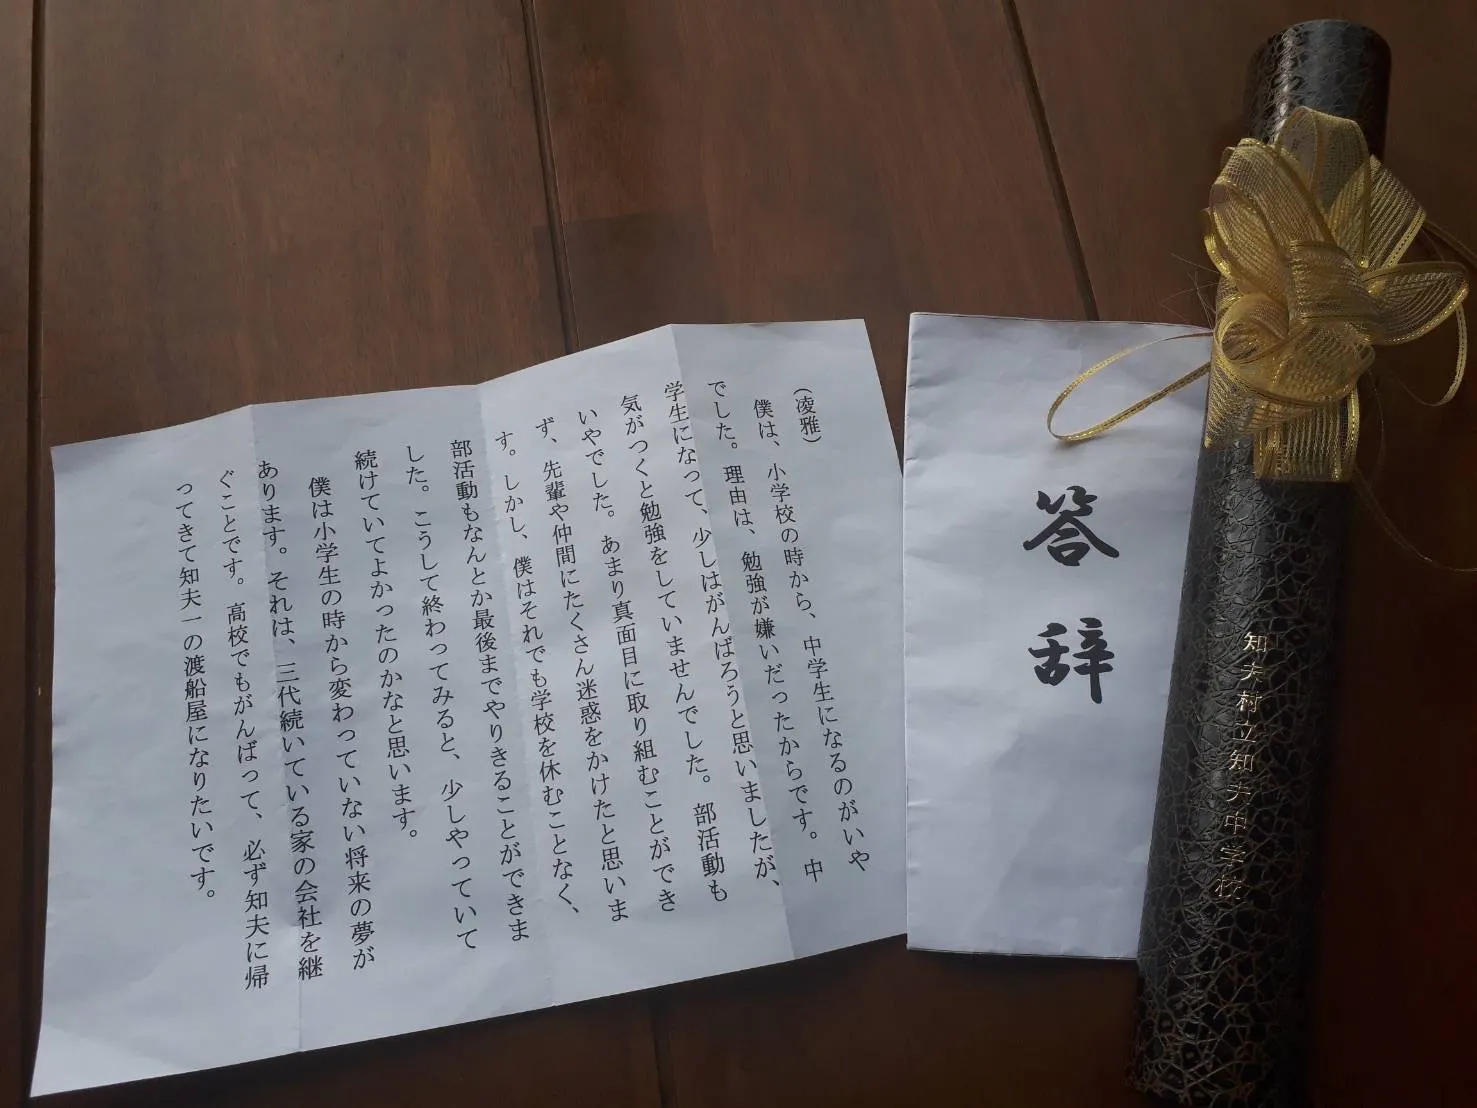 （凌雅）
僕は、小学校の時から、中学生になるのがいや
でした。理由は、勉強が嫌いだったからです。中
学生になって、少しはがんばろうと思いましたが、
気がつくと勉強をしていませんでした。部活動も
いやでした。あまり真面目に取り組むことができ
ず、先輩や仲間にたくさん迷惑をかけたと思いま
す。しかし、僕はそれでも学校を休むことなく、
部活動もなんとか最後までやりきることができま
した。こうして終わってみると、少しやっていて
続けていてよかったのかなと思います。
僕は小学生の時から変わっていない将来の夢が
あります。それは、三代続いている家の会社を継
ぐことです。高校でもがんばって、必ず知夫に帰
ってきて知夫一の渡船屋になりたいです。
答辞
知夫村立知夫中学校